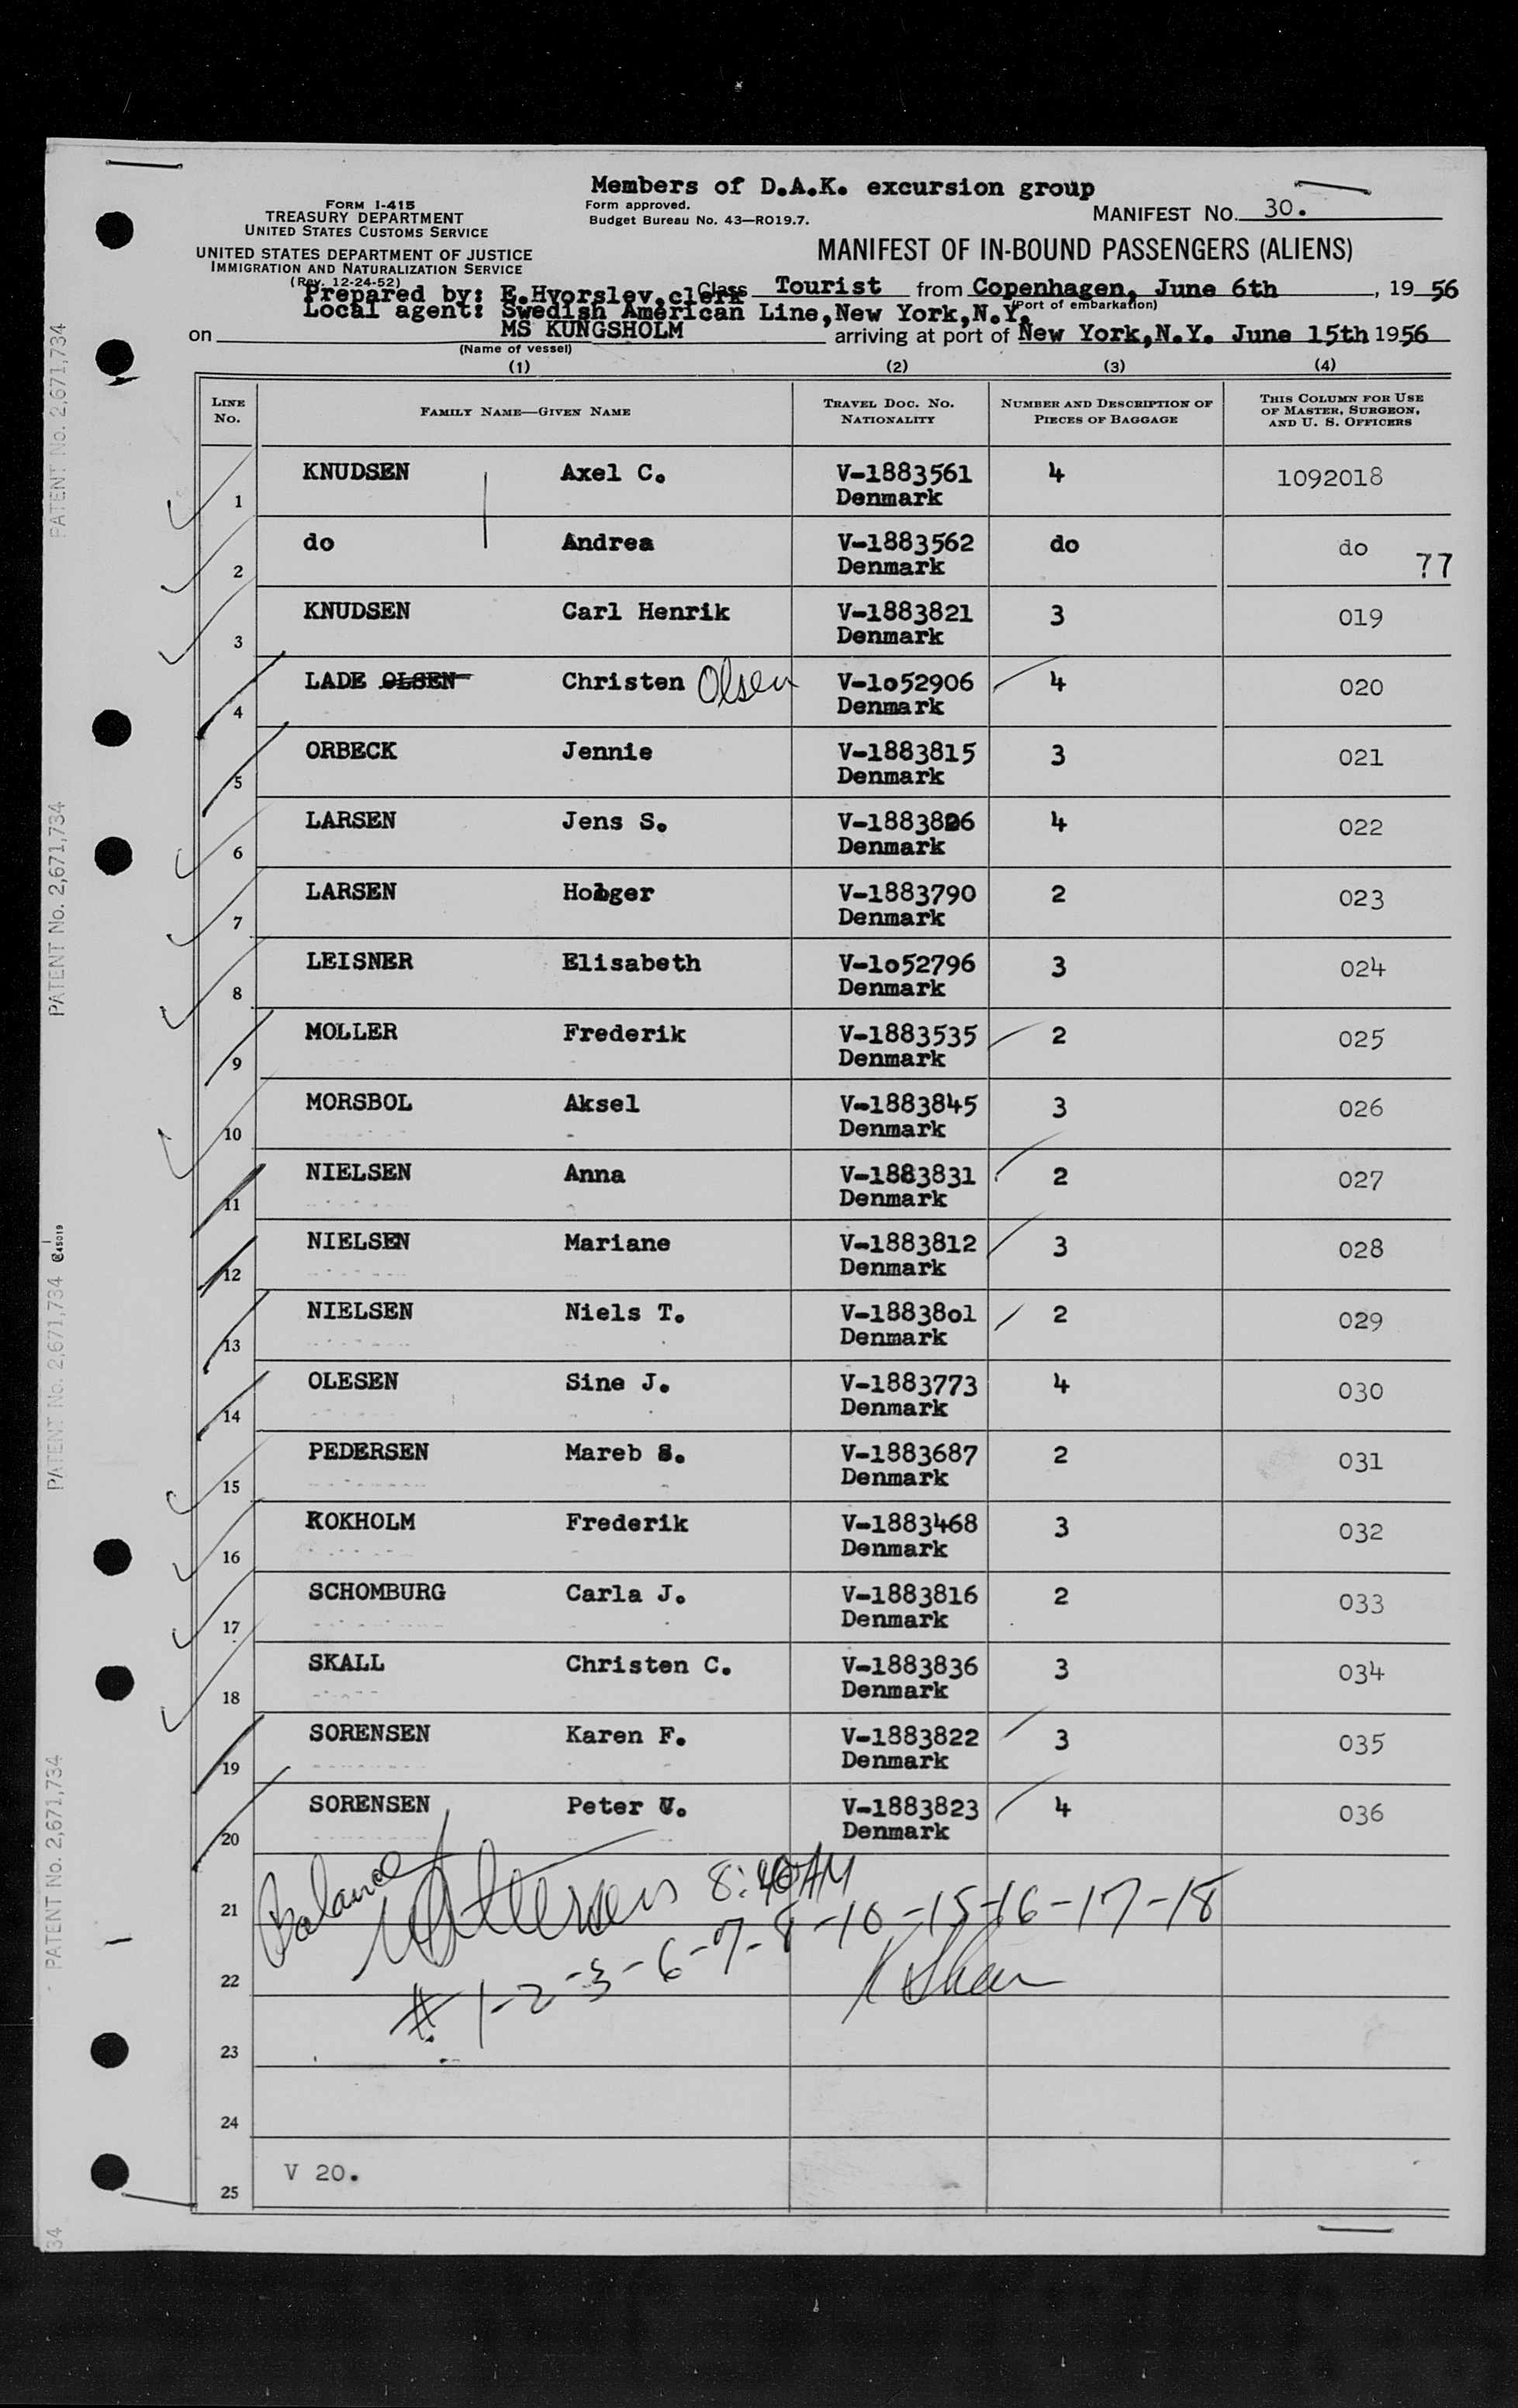 Members of D.A.K. excursion group
FORM I-415
TREASURY DEPARTMENT
UNITED STATES CUSTOMS SERVICE
Form approved.
Budget Bureau No. 43—RO19.7.
MANIFEST NO. 30.
UNITED STATES DEPARTMENT OF JUSTICE
IMMIGRATION AND NATURALIZATION SERVICE
(Rev. 12-24-52)
MANIFEST OF IN-BOUND PASSENGERS (ALIENS)
Prepared by: E.Hvorslev,clerk Class Tourist from Copenhagen, June 6th, 1956
(Port of embarkation)
Local agent: Swedish American Line,New York,N.Y.
on MS KUNGSHOLM arriving at port of New York,N.Y. June 15th 1956
(Name of vessel)
(1) (2) (3) (4)
LINE No. FAMILY NAME—GIVEN NAME TRAVEL DOC. NO. NATIONALITY NUMBER AND DESCRIPTION OF PIECES OF BAGGAGE THIS COLUMN FOR USE OF MASTER, SURGEON, AND U. S. OFFICERS
1 KNUDSEN Axel C. V-1883561 Denmark 4 1092018
2 do Andrea V-1883562 Denmark do do 77
3 KNUDSEN Carl Henrik V-1883821 Denmark 3 019
4 LADE OLSEN Christen Olsen V-1o52906 Denmark 4 020
5 ORBECK Jennie V-1883815 Denmark 3 021
6 LARSEN Jens S. V-1883806 Denmark 4 022
7 LARSEN Holger V-1883790 Denmark 2 023
8 LEISNER Elisabeth V-1o52796 Denmark 3 024
9 MOLLER Frederik V-1883535 Denmark 2 025
10 MORSBOL Aksel V-1883845 Denmark 3 026
11 NIELSEN Anna V-1883831 Denmark 2 027
12 NIELSEN Mariane V-1883812 Denmark 3 028
13 NIELSEN Niels T. V-18838o1 Denmark 2 029
14 OLESEN Sine J. V-1883773 Denmark 4 030
15 PEDERSEN Mareb S. V-1883687 Denmark 2 031
16 KOKHOLM Frederik V-1883468 Denmark 3 032
17 SCHOMBURG Carla J. V-1883816 Denmark 2 033
18 SKALL Christen C. V-1883836 Denmark 3 034
19 SORENSEN Karen F. V-1883822 Denmark 3 035
20 SORENSEN Peter V. V-1883823 Denmark 4 036
Balance 8:40 AM
21
# 1-2-3-6-7-8-10-15-16-17-18
22
23
24
25 V 20.
PATENT No. 2,671,734
PATENT No. 2,671,734
PATENT No. 2,671,734
PATENT No. 2,671,734
34